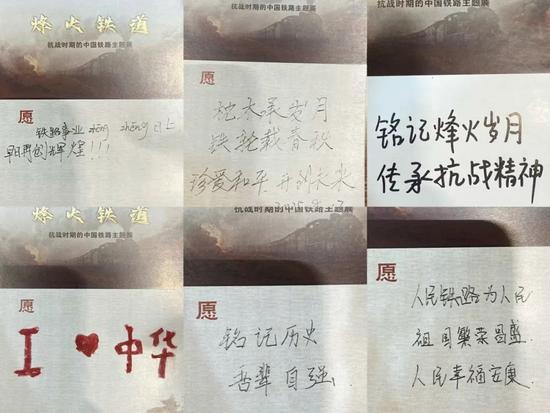 烽火铁道
抗战时期的中国铁路主题展
愿
铁路事业zhēng zhēng日上
早日再创辉煌!!!
抗战时期的中国铁路主题展
愿
枕木承岁月
铁轮载春秋
珍爱和平 开创未来
铭记烽火岁月
传承抗战精神
烽火铁道
抗战时期的中国铁路主题展
愿
I ♥ 中华
抗战时期的中国铁路主题展
愿
铭记历史
吾辈自强
愿
人民铁路为人民
祖国繁荣昌盛
人民幸福安康